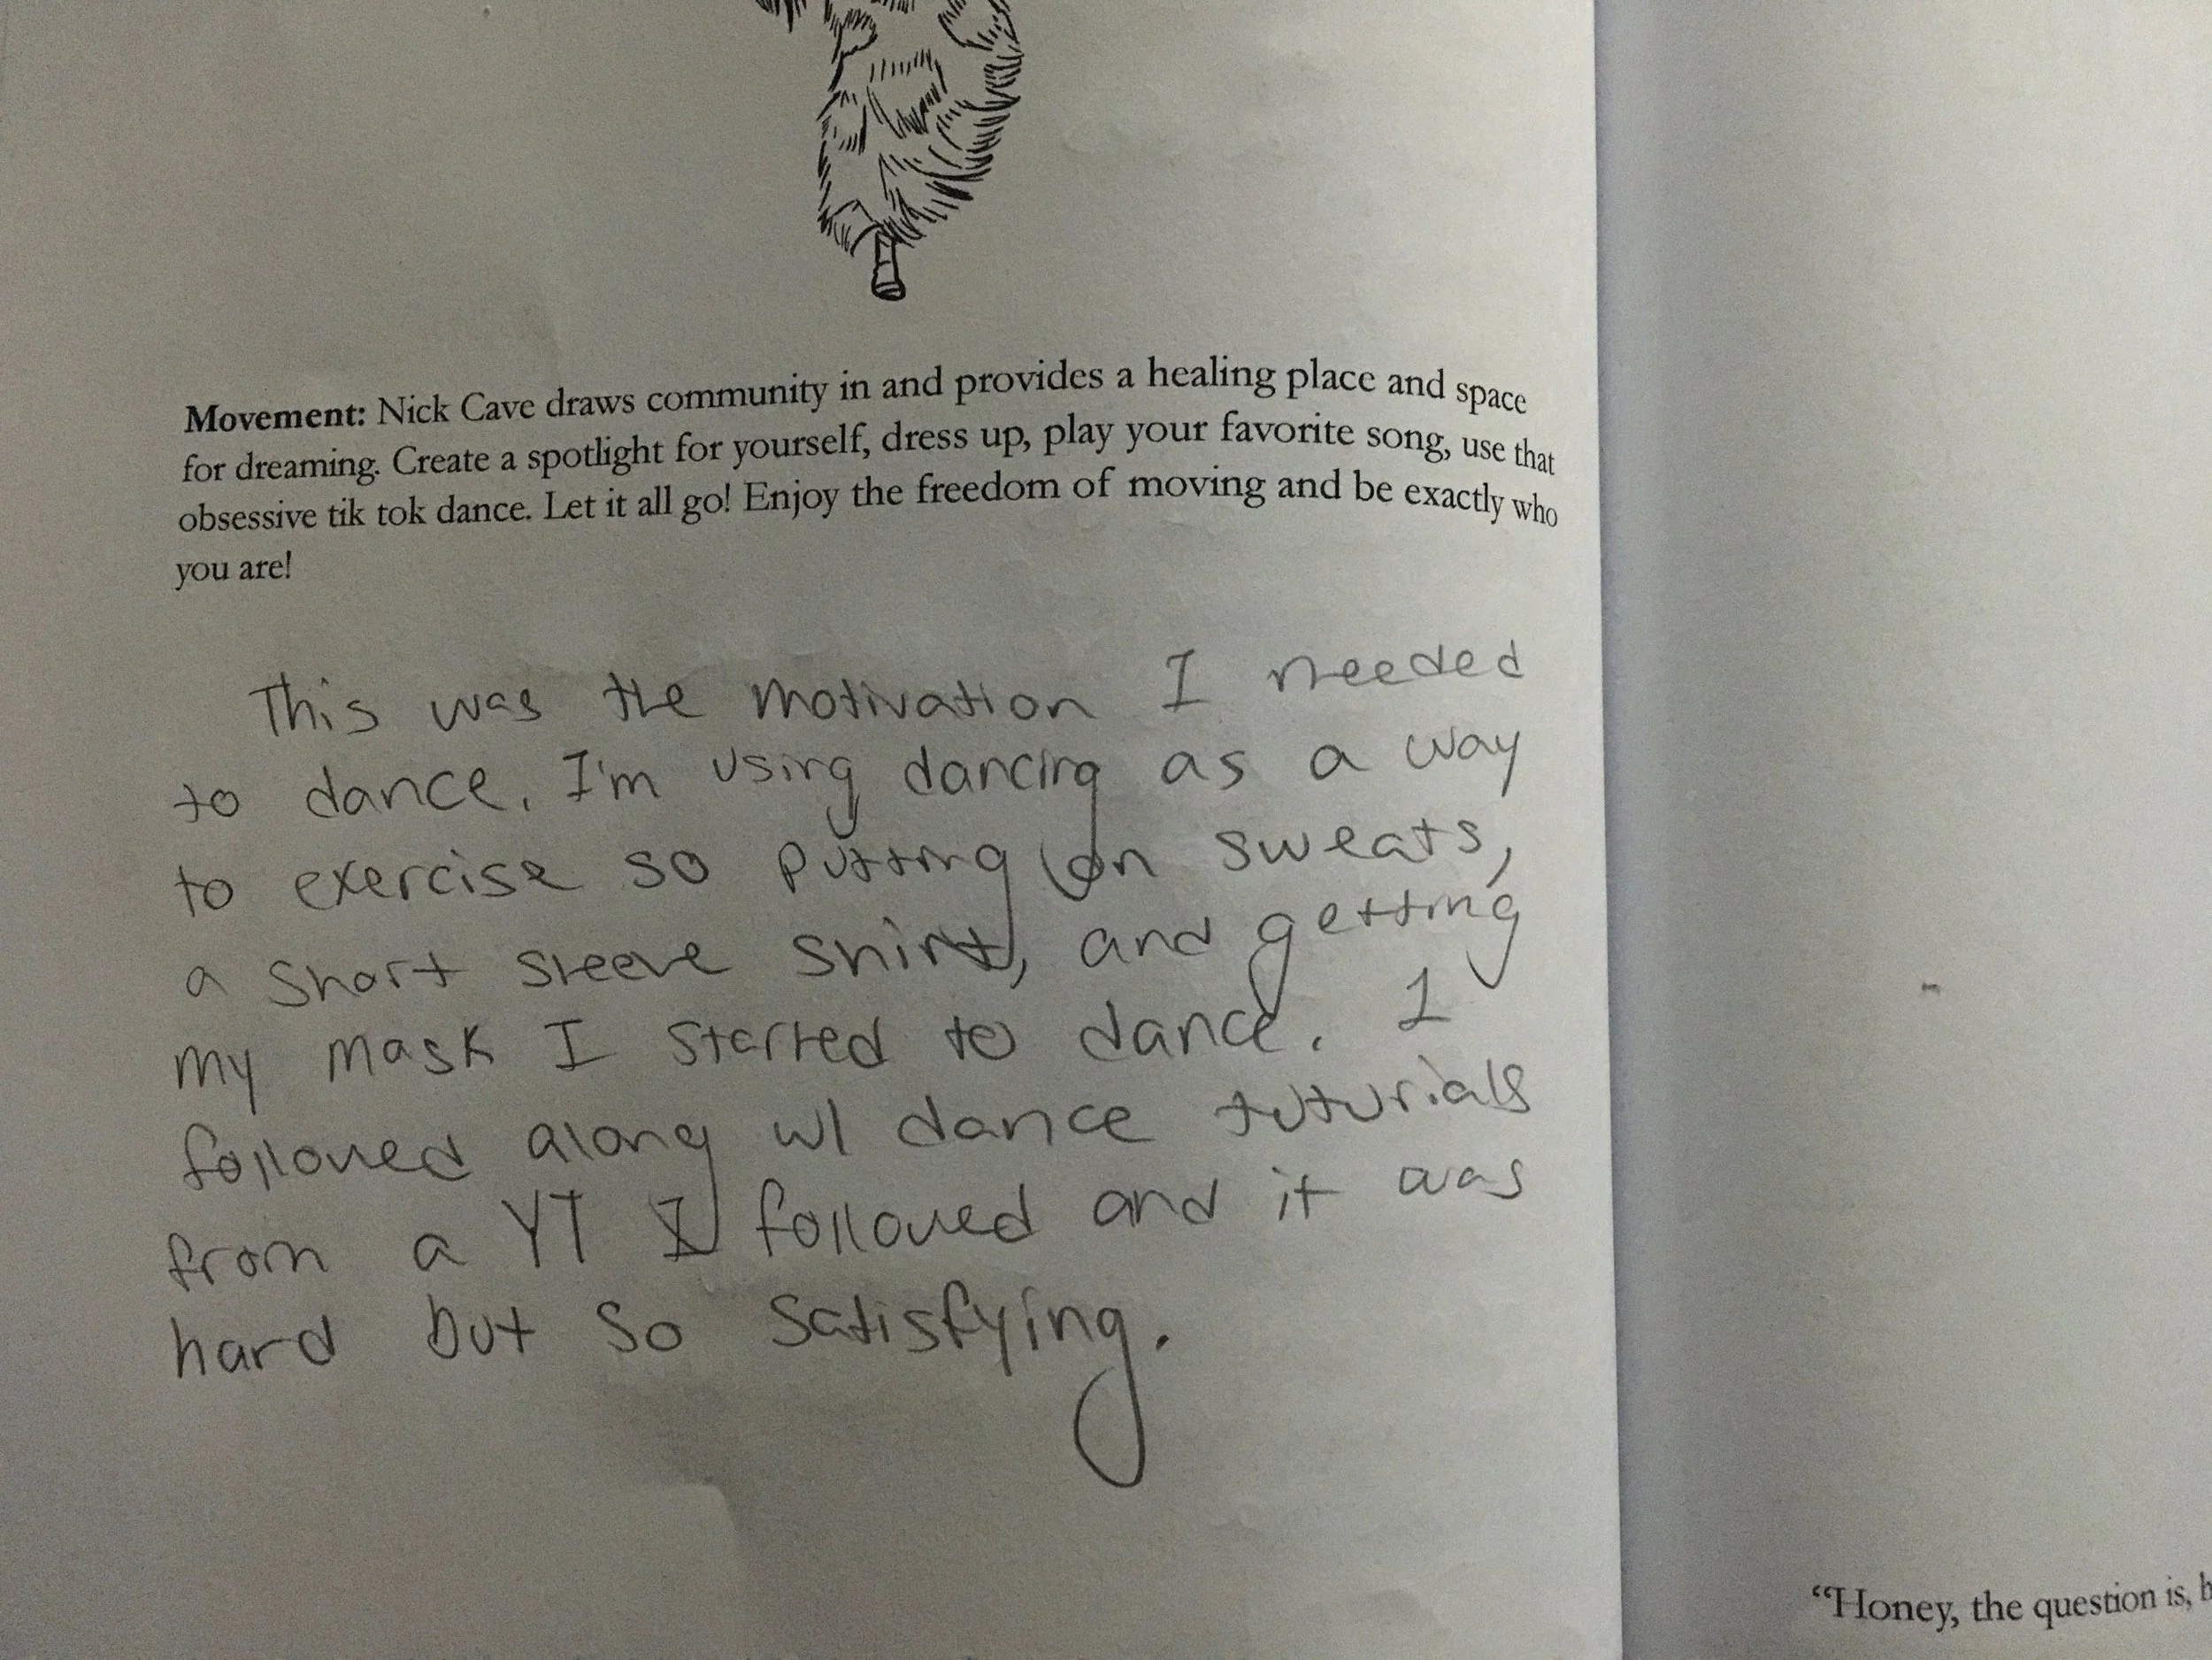 Movement: Nick Cave draws community in and provides a healing place and space
for dreaming. Create a spotlight for yourself, dress up, play your favorite song, use that
obsessive tik tok dance. Let it all go! Enjoy the freedom of moving and be exactly who
you are!
This was the motivation I needed
to dance. I'm using dancing as a way
to exercise so putting on sweats,
a short sleeve shirt, and getting
my mask I started to dance. I
followed along w/ dance tuturials
from a YT I followed and it was
hard but so satisfying.
"Honey, the question is,